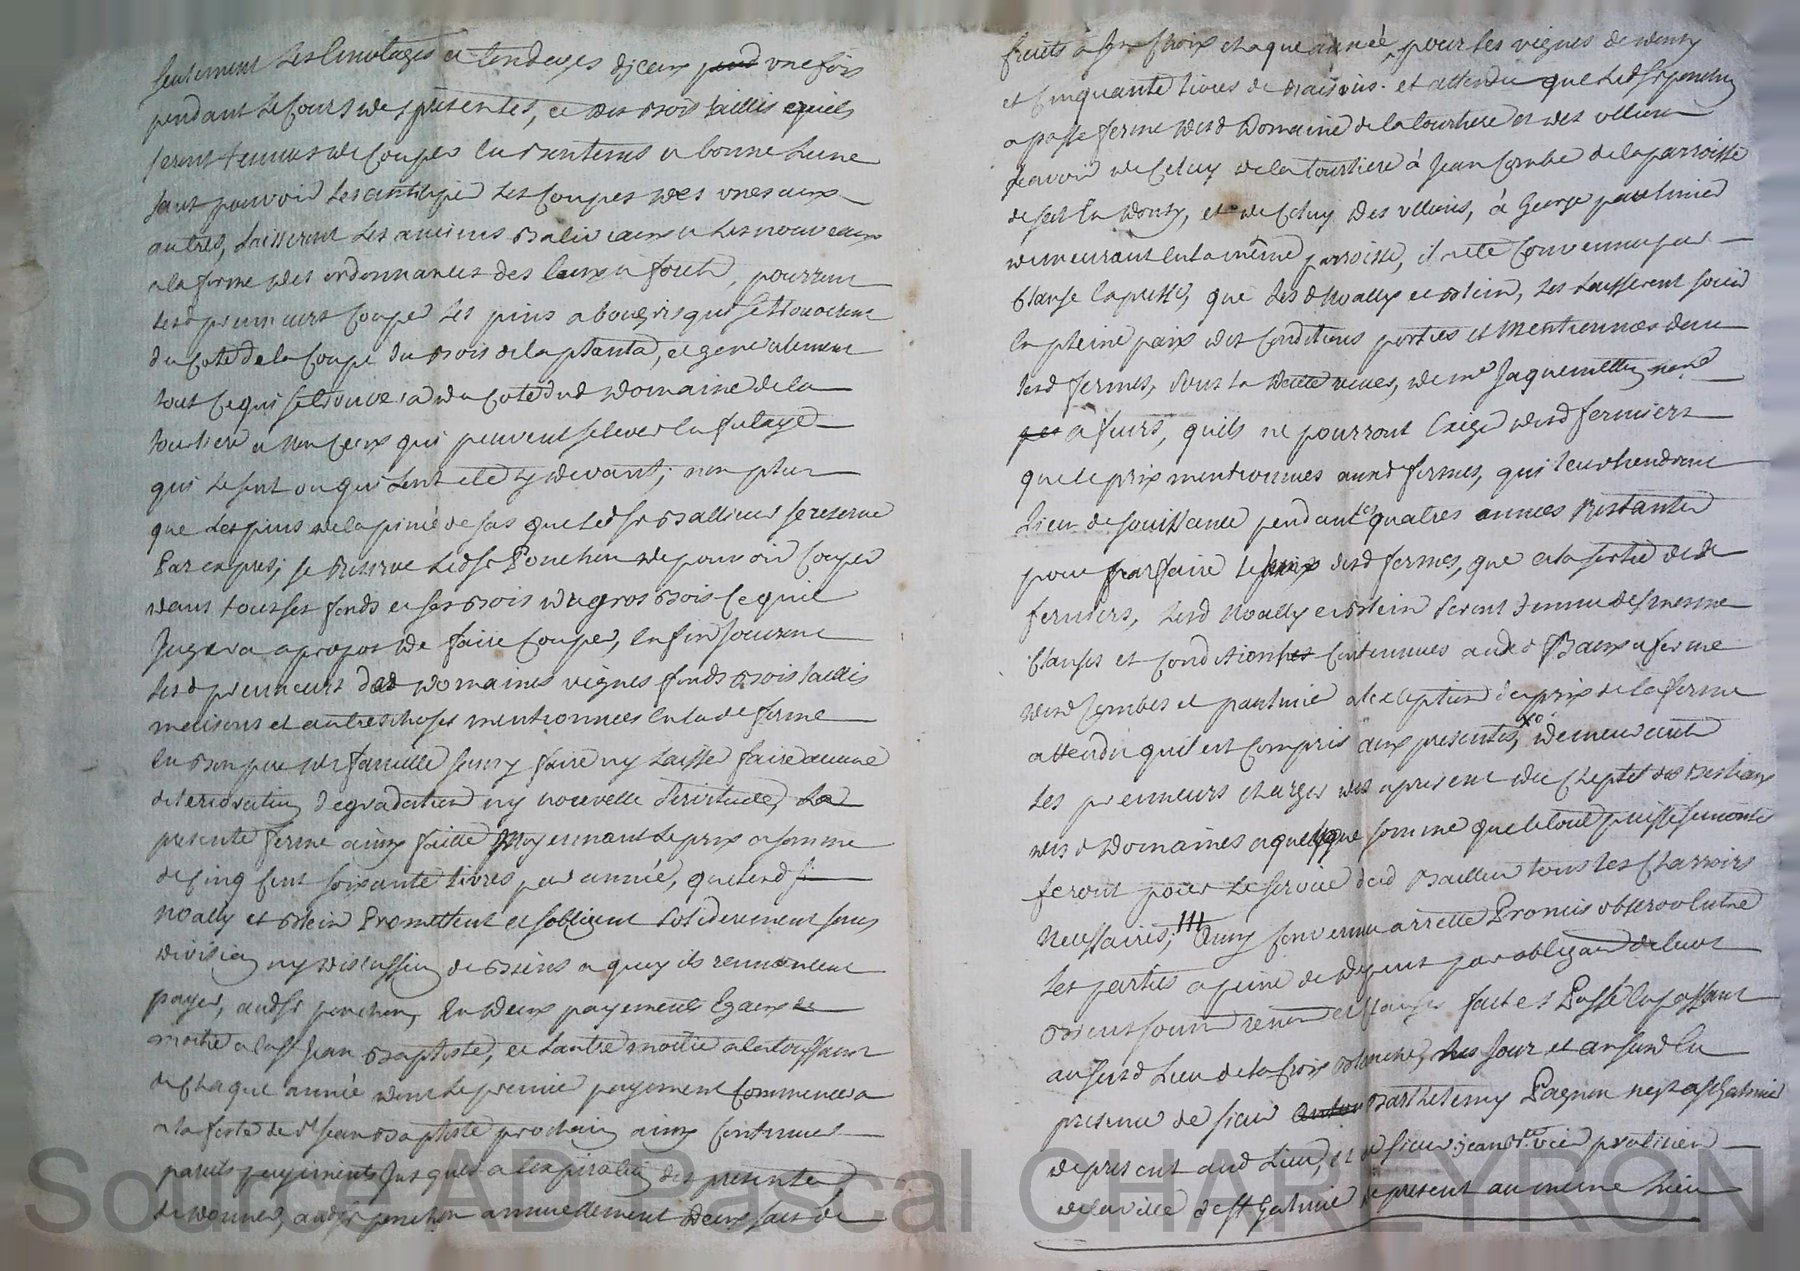 seulement les émotages et tondages diceux pend une fois
pendant le cours des presentes, et des bois taillis quils
seront tenus de couper en printems a bonne lune
sans pouvoir les anticiper les coupes des unes aux
autres, laisseront les anciens balivaux et les nouveaux
a la forme des ordonnances des eaux et forets, pourront
lesd preneurs couper les pins abougris qui se trouveront
du coté de la coupe du bois de la planta, et generalement
tout ce qui se trouvera du coté dud domaine de la
tourliere a non ceux qui peuvent selever en futaye
qui le sont ou qui lont eté cy devant, non plus
que les pins de la pinée de sas que led sr bailleur se reserve
Par exprès; se reserve led sr Ponchon de pouvoir couper
dans tous ses fonds et ses bois du gros bois ce quil
Jugera a propos de faire couper, en fin jouiront
lesd preneurs desd domaines vignes fonds bois taillis
maisons et autres choses mentionnées en lade ferme
en bon pere de famille sans y faire ny laisser faire aucune
deterioration degradation ny nouvelle servitude, La
presente ferme ainsy faitte Moyennant le prix et somme
de cinq cent soixante livres par année, que lesd s
noally et blein Promettent et sobligent solidairement sans
division ny discussion de biens a quoy ils renoncent
payer, audsr ponchon, En deux payements Egaux de
moitié a la st Jean Baptiste, et lautre moitié a la toussaint
de chaque année dont le premier payement commencera
a la feste de st Jean Baptiste prochain ainsy continuer
pareils payements Jusques a lexpiration des presentes
de donner audsr ponchon annuellement deux sacs de
fruits à son choix chaque année, pour les vignes de
et cinquante livres de raisins. et attendu que led sr ponchon
a passé ferme desd Domaine de la tourliere et des
scavoir de celuy de la tourliere à Jean Combe de la parroisse
de st en donzy, et de celuy des à George paulmier
demeurant en la même parroisse, il a eté convenu par
clause expresse, que lesd Noally et blein, les laisseront jouir
en pleine paix des conditions portées et mentionnées dans
lesd fermes, sous la datte reçues, de me Jaquemetton nore
a feurs, quils ne pourront Exiger desd fermiers
que le prix mentionnés auxd fermes, qui leur tiendront
Lieu de jouissance pendant les quatres années Restantes
pour parfaire le prix desd fermes, que a la sortie desd
fermiers, lesd Noally et blein seront tenus des mesme
clauses et conditions contenues auxd Baux a ferme
desd Combes et paulmier a lexception du prix de la ferme
attendu quil est compris aux presentes, xo demeurants
les preneurs chargés des a present du cheptel des Bestiaux
desd Domaines a quelque somme que le tout puisse se monter
feront pour le service dud Bailleur tous les charrois
Necessaires, Ainsy convenu arretté Promis observer entre
les parties a peine de depens par obligaon de leurs
biens soumon renon et clauses fait et Passé en passant
au susd Lieu de la Croix blanche, les Jour et an susd En
presence de sieur Barthelemy Pagnon negt a st Galmier
de present aud lieu, et de sieur jean praticien
de la ville de st Galmier de present au meme Lieu
Source AD Pascal CHAREYRON